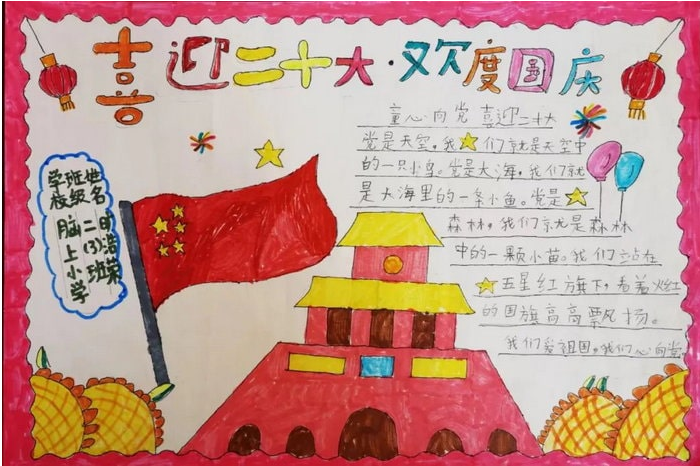 喜迎二十大·欢度国庆
童心向党 喜迎二十大
党是天空,我们就是天空中
的一只小鸟。党是大海,我们就
是大海里的一条小鱼。党是
森林,我们就是森林
中的一颗小苗。我们站在
五星红旗下,看着火红
的国旗高高飘扬。
我们爱祖国,我们心向党
姓名
班级 二(3)班
学校 脑上小学